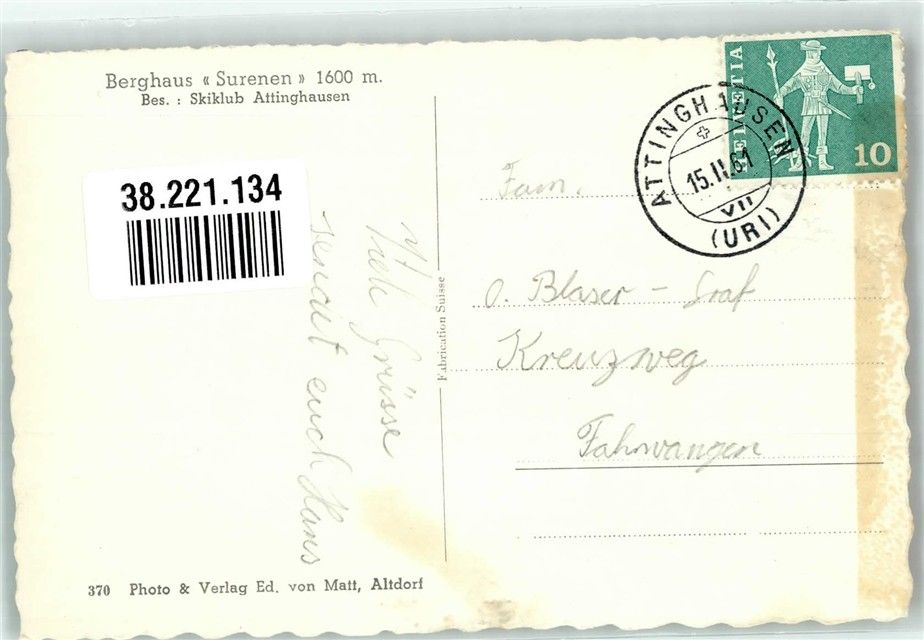 Berghaus « Surenen » 1600 m.
Bes. : Skiklub Attinghausen
38.221.134
Viele Grüsse
sendet euch Hans
Fabrication Suisse
HELVETIA
10
ATTINGHAUSEN
15.II.61
VII
(URI)
Fam.
O. Blaser - Graf
Kreuzweg
Fahrwangen
370 Photo & Verlag Ed. von Matt, Altdorf